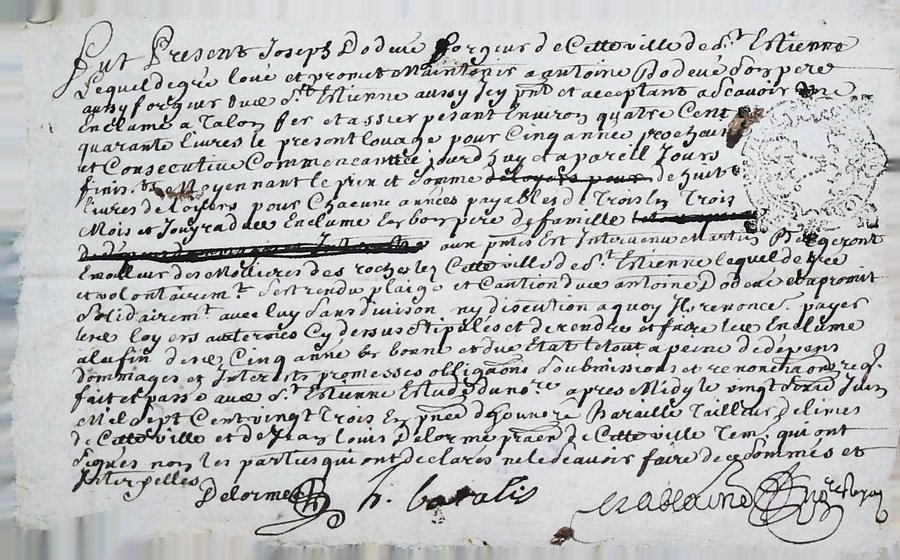 Fut Present Joseph Dodeué forgeur de Cette ville de St Estienne
Lequel de gré loue et promet Maintenir a antoine Dodeué son pere
aussy forgeur dud St Estienne aussy Icy pnt et acceptant a Scavoir une
Enclume a Talon fer et assier pesant Environ quatre Cent
quarante livres le present louage pour Cinq année prochain
et Consecutive Commencant Ce jourdhuy et a pareil Jours
finis Moyennant le prix et Somme de huit
livres de loyers pour Chacune années payables de Trois En Trois
Mois et Jouyra dud Enclume En bon pere de famille
aux pntes Est Intervenu Martin
Emolleur des Molieres des roches les Cette ville de St Estienne lequel de gré
et volontairemt Sest rendu plaige et Caution dud antoine Dodeué et a promit
Solidairemt avec luy Sans divison ny discution a quoy Il renonce payer
les loyers aux termes Cy dessus Stipulés et de rendre et faire led Enclume
a la fin desd Cinq année En bonne et due Etat le tout a peine de depens
dommages et Interets promesses obligaons Soubmissions et renonciaons req.
fait et passé aud St Estienne Estude du nore apres Midy le vingt Juin
Mil Sept Cent vingt Trois En pnce de honnore Baraille Tailleur de limes
de Cette ville et de Jean Louis Delorme praen de Cette ville Tem. qui ont
Signés non les parties qui ont declarés ne le Scavoir faire de ce Sommés et
Interpelles
Delorme h. baralis